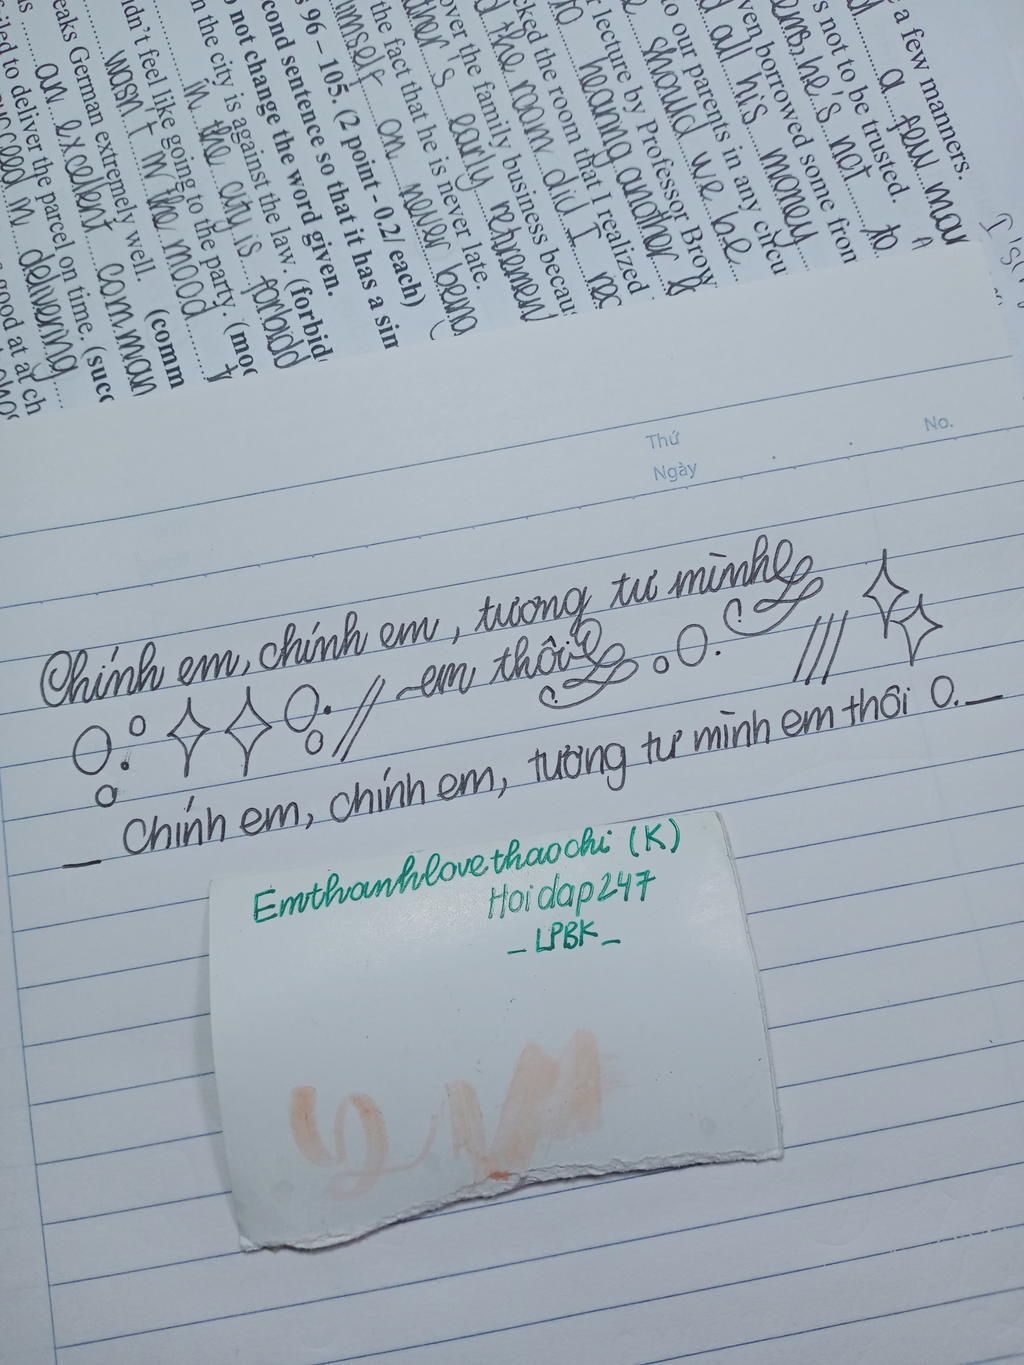 a few manners.
a few man
s not to be trusted.
he's not to
ven borrowed some from
d all his money
to our parents in any circu
should we be
r lecture by Professor Brow
to hearing another
cked the room that I realized
d the room did I rec
over the family business becau
ther's early retirement
the fact that he is never late.
imself on never being
s 96 – 105. (2 point - 0.2/ each)
econd sentence so that it has a sim
o not change the word given.
n the city is against the law. (forbid
in the city is forbidd
idn't feel like going to the party. (moo
wasn't in the mood
eaks German extremely well. (comm
an excellent comman
iled to deliver the parcel on time. (succ
cceed in delivering
good at at ch
Thứ
Ngày
No.
Chính em, chính em, tương tư mình
em thôi
_ Chính em, chính em, tương tư mình em thôi 0._
Emthanhlovethaochi (K)
Hoidap247
_LPBK_